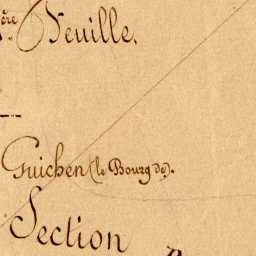 ère Feuille.
Guichen (le Bourg de).
Section